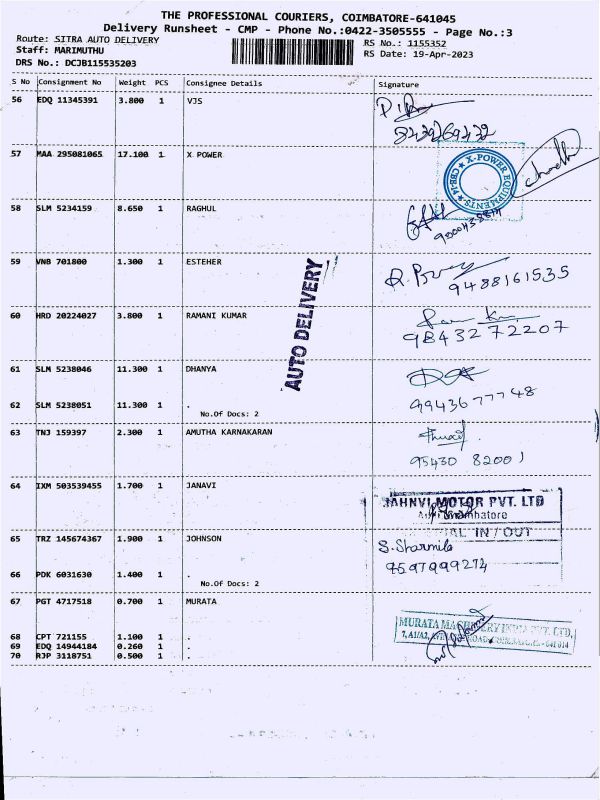 THE PROFESSIONAL COURIERS, COIMBATORE-641045
Delivery Runsheet - CMP - Phone No.:0422-3505555 - Page No.:3
Route: SITRA AUTO DELIVERY
RS No.: 1155352
Staff: MARIMUTHU
RS Date: 19-Apr-2023
DRS No.: DCJB115535203
S No Consignment No Weight PCS Consignee Details Signature
56 EDQ 11345391 3.800 1 VJS
57 MAA 295081065 17.100 1 X POWER
X-POWER EQUIPMENTS
CBE-14
58 SLM 5234159 8.650 1 RAGHUL
59 VNB 701800 1.300 1 ESTEHER
9488161535
AUTO DELIVERY
60 HRD 20224027 3.800 1 RAMANI KUMAR
98432 72207
61 SLM 5238046 11.300 1 DHANYA
62 SLM 5238051 11.300 1 .
No.Of Docs: 2
9943677748
63 TNJ 159397 2.300 1 AMUTHA KARNAKARAN
95430 82001
64 IXM 503539455 1.700 1 JANAVI
JAHNVI MOTOR PVT. LTD
IN / OUT
65 TRZ 145674367 1.900 1 JOHNSON
S. Sharmila
9597999274
66 PDK 6031630 1.400 1 .
No.Of Docs: 2
67 PGT 4717518 0.700 1 MURATA
68 CPT 721155 1.100 1 .
69 EDQ 14944184 0.260 1 .
70 RJP 3118751 0.500 1 .